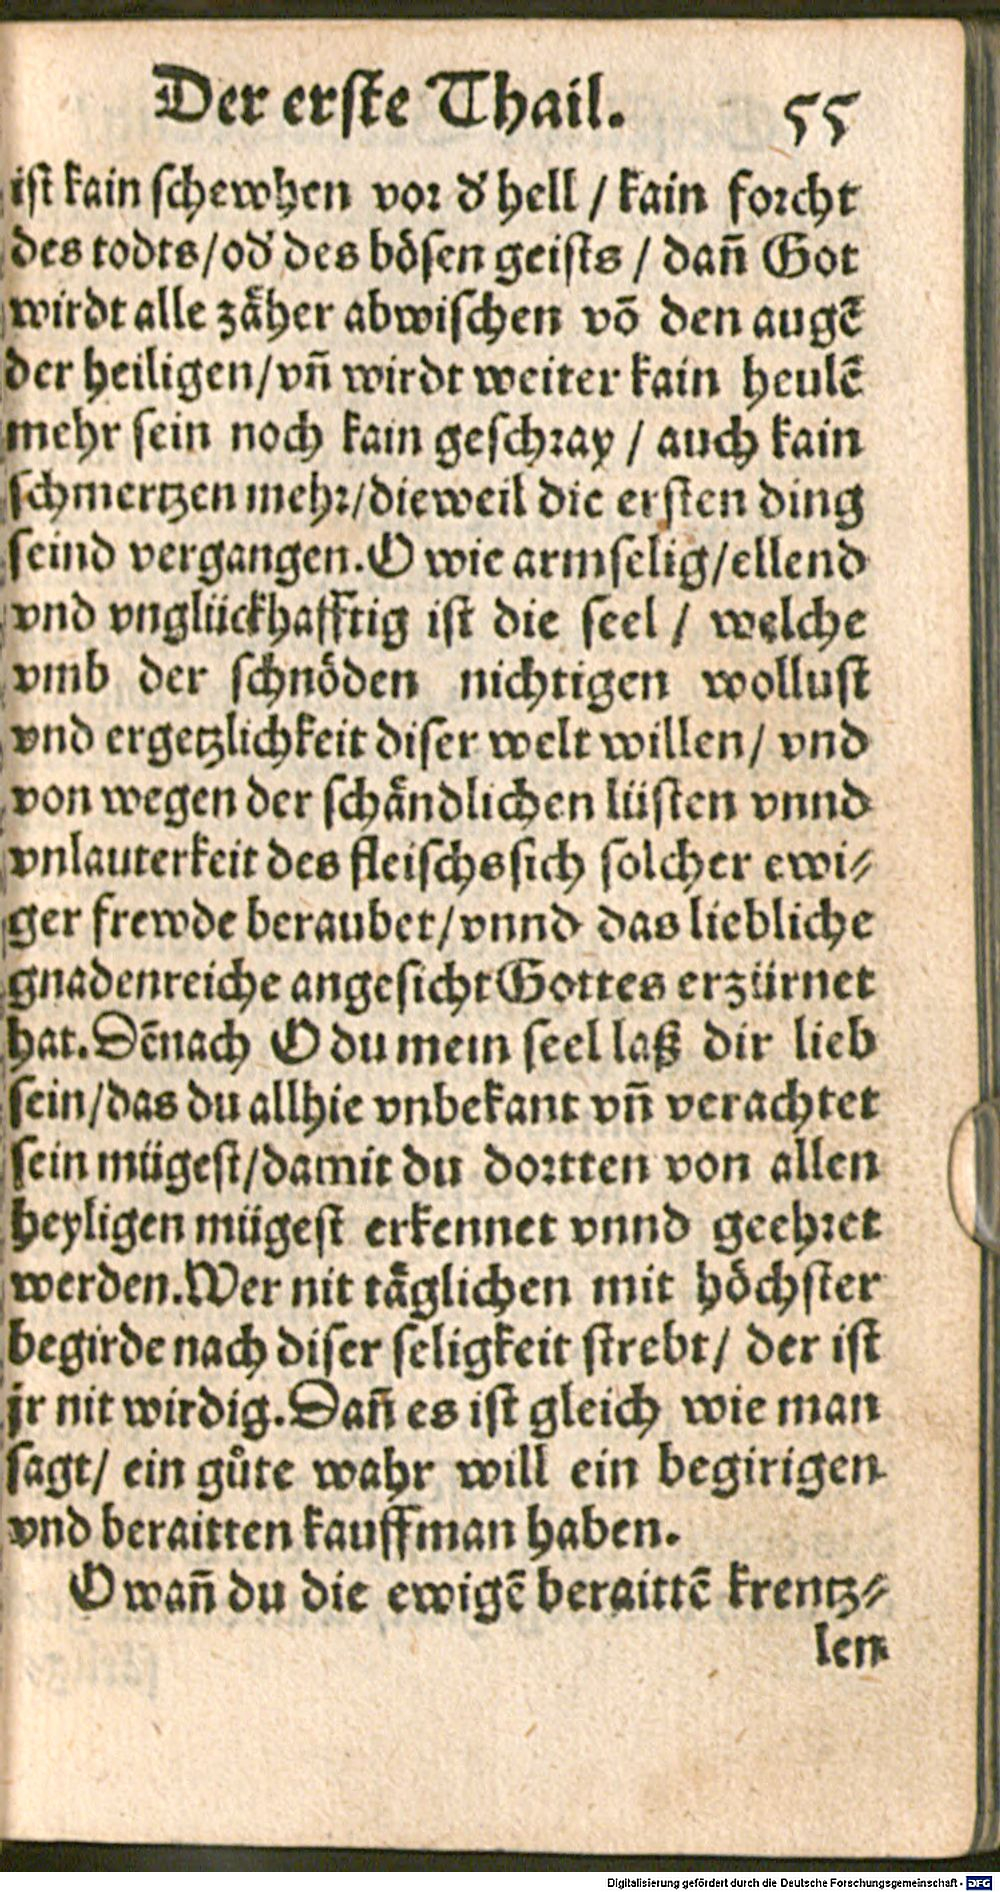 Der erſte Thail. 55
iſt kain ſchewhen vor dʼ hell / kain forcht
des todts/odʼ des böſen geiſts / dañ Got
wirdt alle zäher abwiſchen võ den augẽ
der heiligen/vñ wirdt weiter kain heulẽ
mehr ſein noch kain geſchray / auch kain
ſchmertzen mehr/dieweil die erſten ding
ſeind vergangen. O wie armſelig/ellend
vnd vnglückhafftig iſt die ſeel / welche
vmb der ſchnöden nichtigen wolluſt
vnd ergetzlichkeit diſer welt willen/ vnd
von wegen der ſchändlichen lüſten vnnd
vnlauterkeit des fleiſchs ſich ſolcher ewi⸗
ger frewde beraubet/vnnd das liebliche
gnadenreiche angeſicht Gottes erzürnet
hat. Dẽnach O du mein ſeel laß dir lieb
ſein/das du allhie vnbekant vñ verachtet
ſein mügeſt/damit du dortten von allen
heyligen mügeſt erkennet vnnd geehret
werden. Wer nit täglichen mit höchſter
begirde nach diſer ſeligkeit ſtrebt/ der iſt
jr nit wirdig. Dañ es iſt gleich wie man
ſagt/ ein gůte wahr will ein begirigen
vnd beraitten kauffman haben.
O wañ du die ewigẽ beraittẽ krentz⸗
len
Digitalisierung gefördert durch die Deutsche Forschungsgemeinschaft - DFG